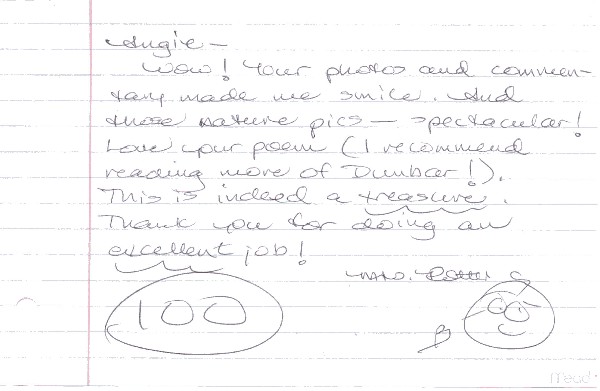 Angie –
Wow! Your photos and commen-
tary made me smile. And
those nature pics – spectacular!
Love your poem (I recommend
reading more of Dunbar!).
This is indeed a treasure.
Thank you for doing an
excellent job!
Mrs.
100
Mead